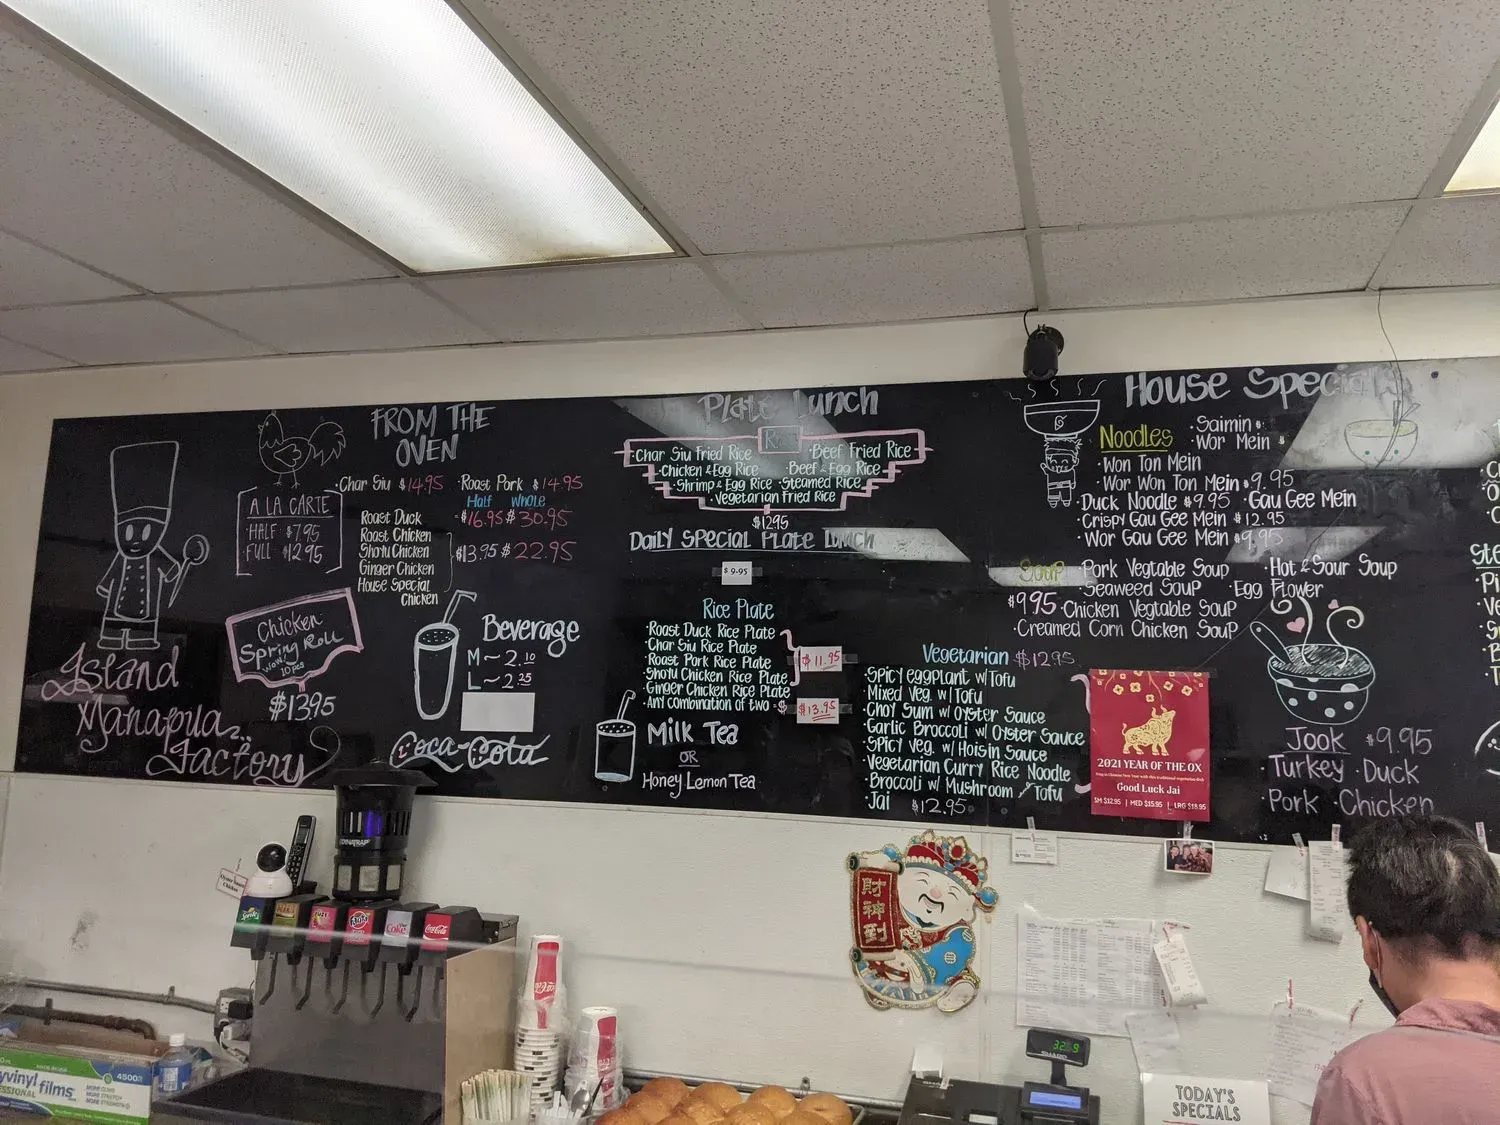 FROM THE
OVEN
Char Siu $14.95 · Roast Pork $14.95
Half Whole
Roast Duck $16.95 $30.95
Roast Chicken
Shoyu Chicken
Ginger Chicken
House Special
Chicken
$13.95 $22.95
A LA CARTE
·HALF $7.95
·FULL $12.95
Chicken
Spring Roll
10pcs
$13.95
Island
Manapua
Factory
Beverage
M ~ 2.10
L ~ 2.35
Coca-Cola
Plate Lunch
Rice
·Char Siu Fried Rice
·Beef Fried Rice
·Chicken & Egg Rice
Beef & Egg Rice
·Shrimp & Egg Rice
·Steamed Rice
·Vegetarian Fried Rice
$12.95
Daily Special Plate Lunch
$9.95
Rice Plate
·Roast Duck Rice Plate
·Char Siu Rice Plate
·Roast Pork Rice Plate
·Shoyu Chicken Rice Plate
·Ginger Chicken Rice Plate
$11.95
·Any combination of two = $
$13.95
Milk Tea
OR
Honey Lemon Tea
Vegetarian $12.95
·Spicy eggplant w/Tofu
·Mixed Veg. w/Tofu
·Choy Sum w/ Oyster Sauce
·Garlic Broccoli w/ Oyster Sauce
·Spicy Veg. w/ Hoisin Sauce
·Vegetarian Curry Rice Noodle
·Broccoli w/ Mushroom Tofu
·Jai $12.95
2021 YEAR OF THE OX
Good Luck Jai
SM $12.95 | MED $15.95 | LRG $18.95
House Special
Noodles
·Saimin
·Wor Mein
·Won Ton Mein
·Wor Won Ton Mein $9.95
·Duck Noodle $9.95 ·Gau Gee Mein
·Crispy Gau Gee Mein $12.95
·Wor Gau Gee Mein $9.95
Soup
$9.95
·Pork Vegtable Soup
·Hot & Sour Soup
·Seaweed Soup
·Egg Flower
·Chicken Vegtable Soup
·Creamed Corn Chicken Soup
Jook $9.95
·Turkey ·Duck
·Pork ·Chicken
財神到
DYNATRAP
Sprite
Diet Coke
Coca-Cola
4500
vinyl films
SHARP
TODAY'S
SPECIALS